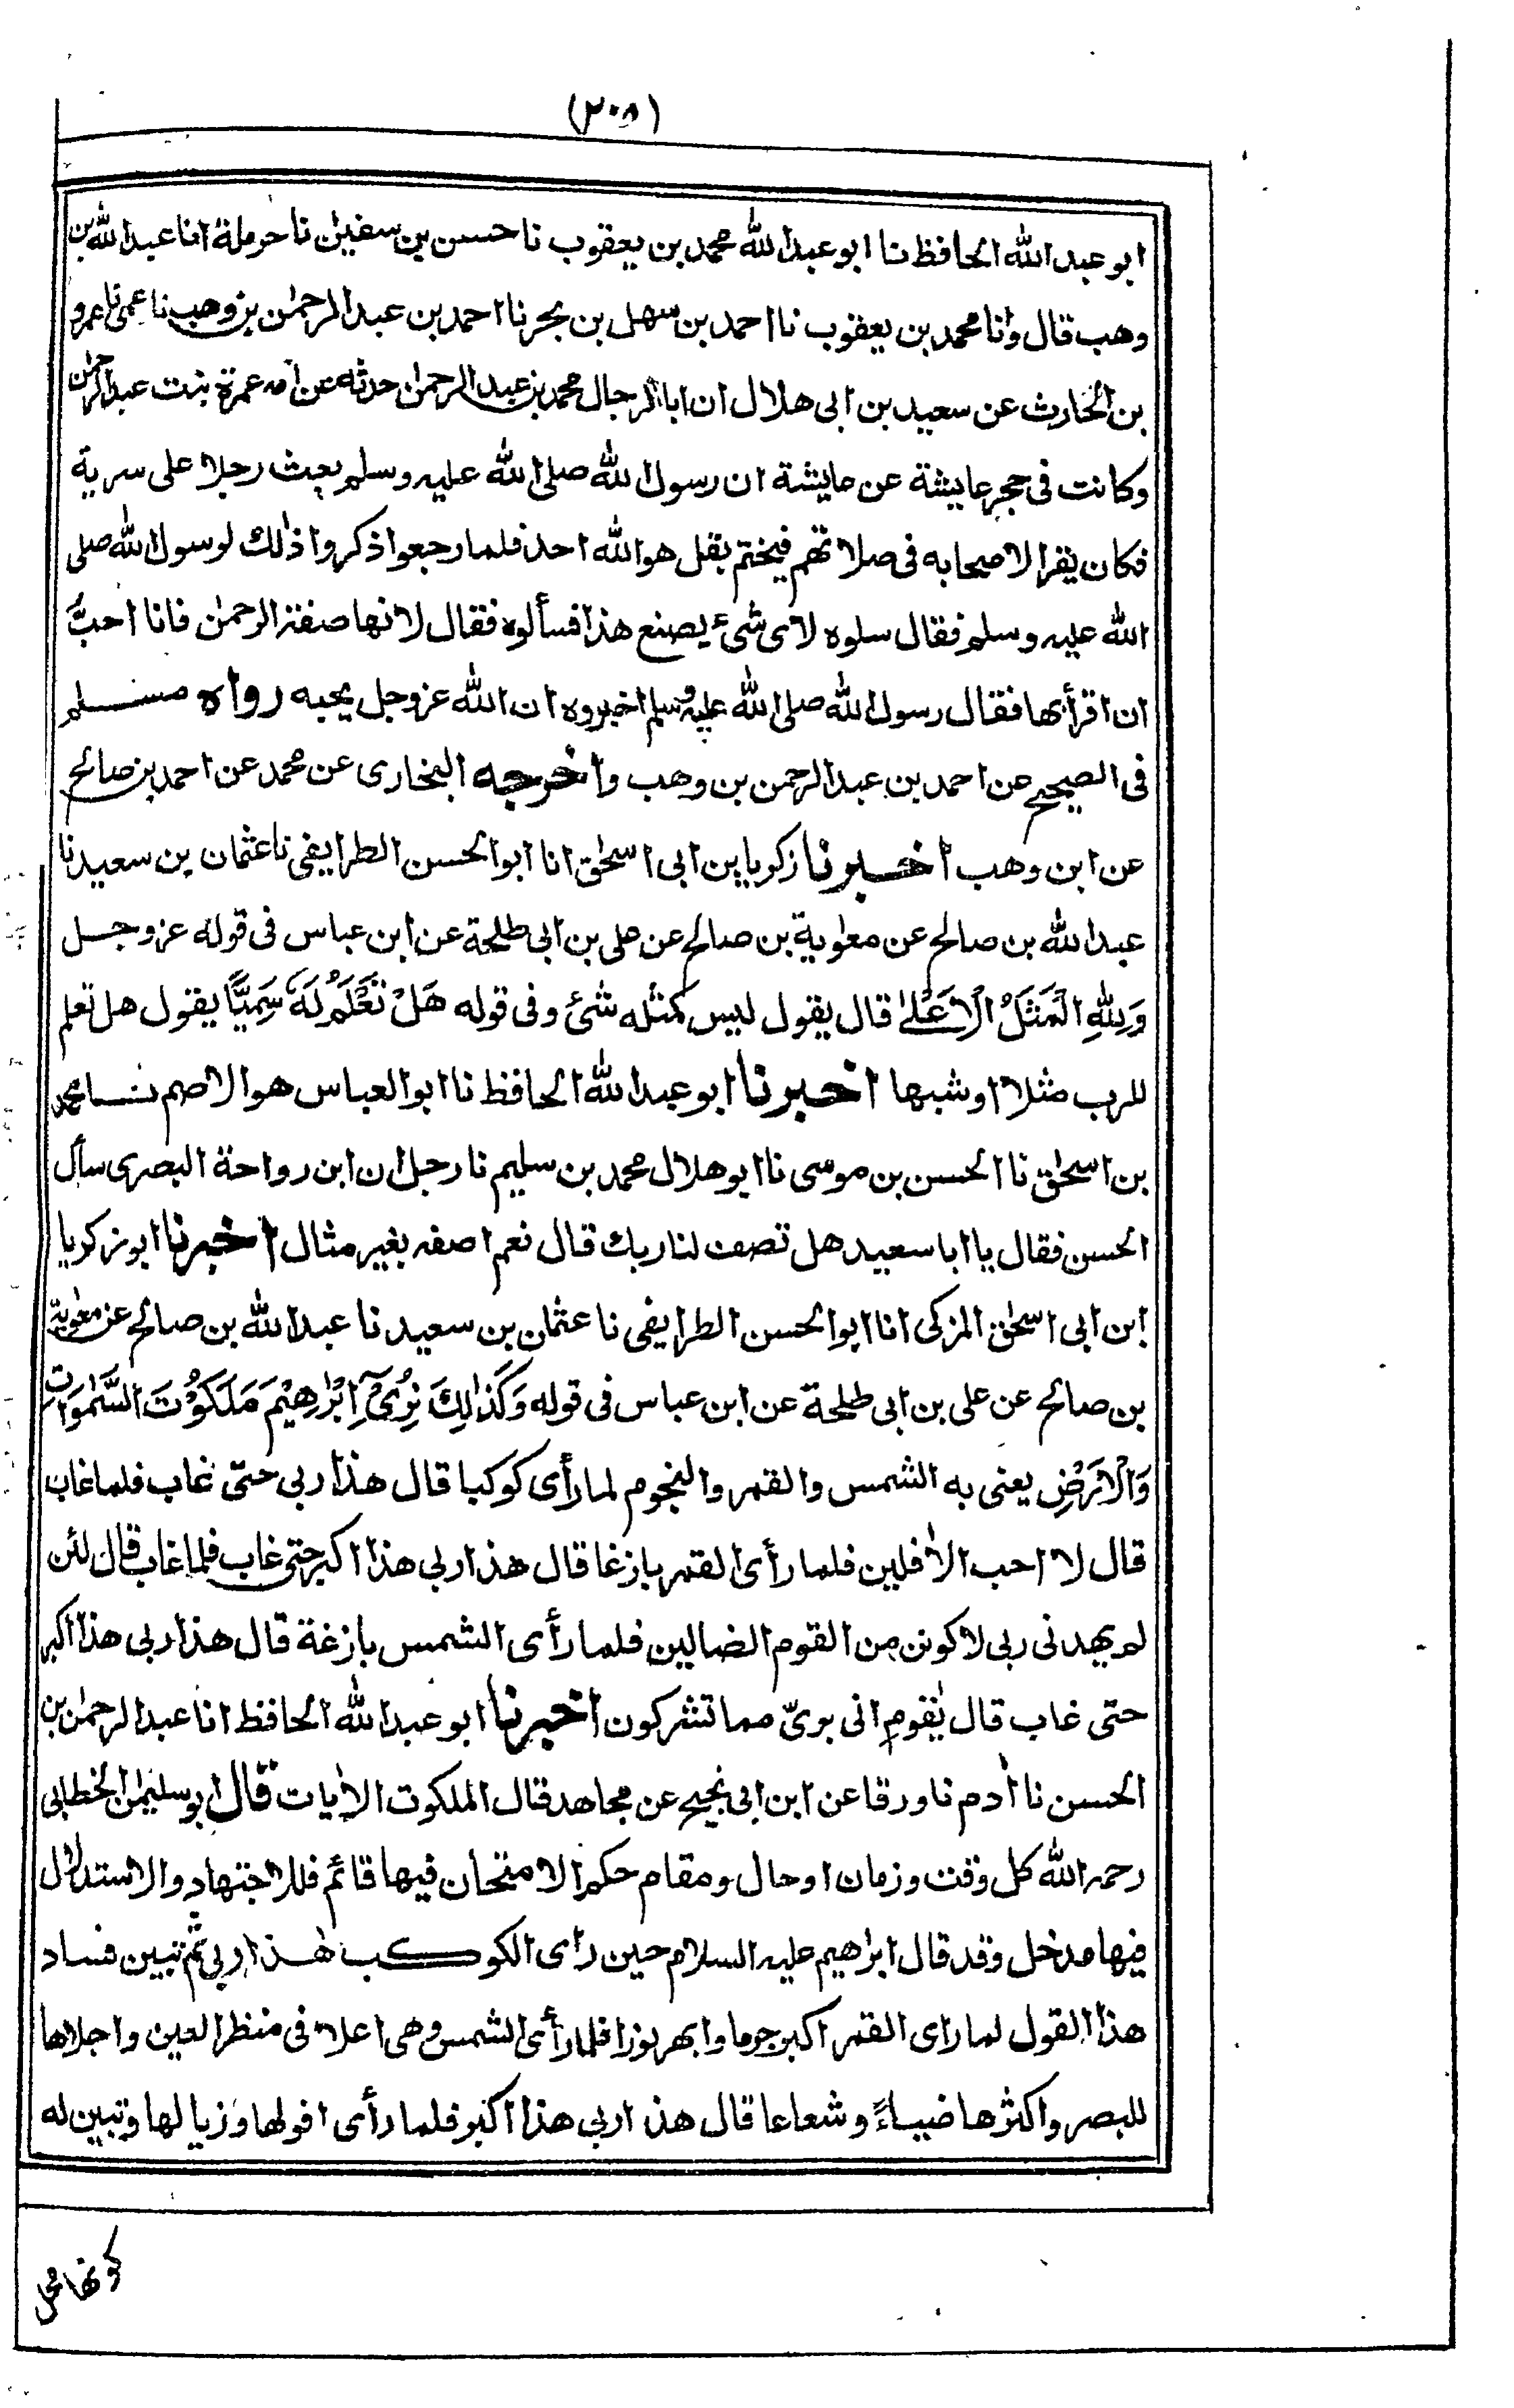 (٢٠٨)
ابو عبد الله الحافظ نا ابو عبد الله محمد بن يعقوب نا حسن بن سفين نا حرملة انا عبد الله بن
وهب قال وأنا محمد بن يعقوب نا احمد بن سهل بن بحر نا احمد بن عبد الرحمن بن وهب نا عمى نا عمرو
بن الحارث عن سعيد بن ابى هلال ان ابا الرجال محمد بن عبد الرحمن حدثه عن امه عمرة بنت عبد الرحمن
وكانت فى حجر عايشة عن عايشة ان رسول الله صلى الله عليه وسلم بعث رجلا على سرية
فكان يقرا لاصحابه فى صلاتهم فيختم بقل هو الله احد فلما رجعوا ذكروا ذلك لرسول الله صلى
الله عليه وسلم فقال سلوه لاى شىء يصنع هذا فسألوه فقال لانها صفة الرحمن فانا احبُّ
ان اقرأ بها فقال رسول الله صلى الله عليه وسلم اخبروه ان الله عز وجل يحبه رواه مسلم
فى الصحيح عن احمد بن عبد الرحمن بن وهب واخرجه البخارى عن محمد عن احمد بن صالح
عن ابن وهب اخبرنا زكريا بن ابى اسحٰق انا ابو الحسن الطرايفى نا عثمان بن سعيد نا
عبد الله بن صالح عن معٰوية بن صالح عن على بن ابى طلحة عن ابن عباس فى قوله عز وجل
وَلِلّٰهِ الْمَثَلُ الْاَعْلٰى قال يقول ليس كمثله شئ وفى قوله هَلْ تَعْلَمُ لَهٗ سَمِيًّا يقول هل تعلم
للرب مثلا او شبها اخبرنا ابو عبد الله الحافظ نا ابو العباس هو الاصم نا محمد
بن اسحٰق نا الحسن بن موسى نا ابو هلال محمد بن سليم نا رجل ان ابن رواحة البصرى سأل
الحسن فقال يا ابا سعيد هل تصف لنا ربك قال نعم اصفه بغير مثال اخبرنا ابو زكريا
ابن ابى اسحٰق المزكى انا ابو الحسن الطرايفى نا عثمان بن سعيد نا عبد الله بن صالح عن معٰوية
بن صالح عن على بن ابى طلحة عن ابن عباس فى قوله وَكَذٰلِكَ نُرِىْٓ اِبْرٰهِيْمَ مَلَكُوْتَ السَّمٰوَاتِ
وَالْاَرْضِ يعنى به الشمس والقمر والنجوم لما رأى كوكبا قال هذا ربى حتى غاب فلما غاب
قال لا احب الآفلين فلما رأى القمر بازغا قال هذا ربى هذا اكبر حتى غاب فلما غاب قال لئن
لم يهدنى ربى لاكونن من القوم الضالين فلما رأى الشمس بازغة قال هذا ربى هذا اكبر
حتى غاب قال يٰقوم انى برىّ مما تشركون اخبرنا ابو عبد الله الحافظ انا عبد الرحمٰن بن
الحسن نا آدم نا ورقا عن ابن ابى نجيح عن مجاهد قال الملكوت الآيات قال ابو سليمٰن الخطابى
رحمه الله كل وقت وزمان او حال ومقام حكم الامتحان فيها قائم فللاجتهاد والاستدلال
فيها مدخل وقد قال ابراهيم عليه السلام حين راى الكوكب هٰذا ربى ثم تبين فساد
هذا القول لما راى القمر اكبر جرما وابهر نورا فلما رأى الشمس وهى اعلا فى منظر العين واجلاها
للبصر واكثرها ضياءً وشعاعا قال هذا ربى هذا اكبر فلما رأى افولها وزيالها وتبين له
كونها محل